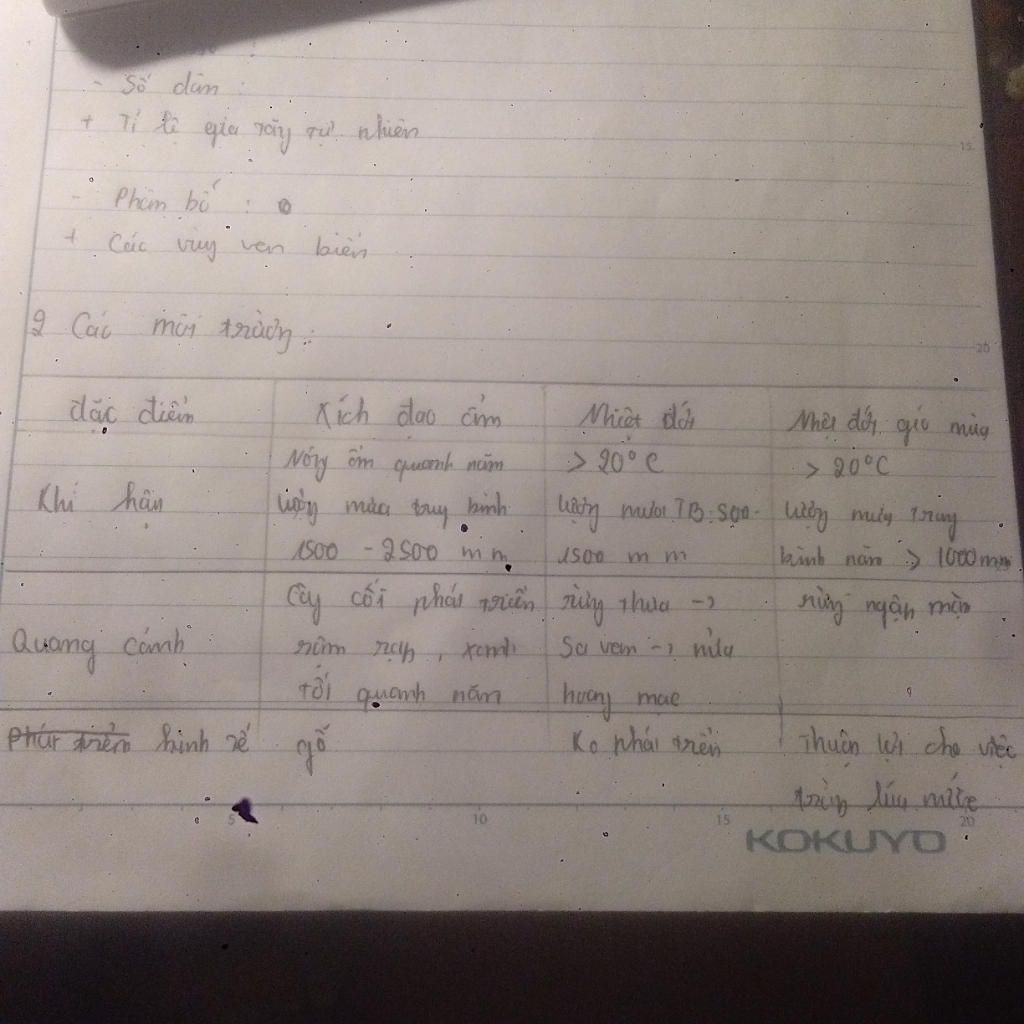 - Số dân :
+ Tỉ lệ gia tăg tự nhiên
- Phân bố :
+ Các vùg ven biển
2 Các môi trườg :
đặc điểm Xích đạo ẩm Nhiệt đới Nhiệt đới gió mùa
Nóng ẩm quanh năm > 20°C > 20°C
Khí hậu lượg mưa trug bình lượg mưa TB: 500- lượg mưa trug
1500 - 2500 mm 1500 mm bình năm > 1000mm
Cây cối phát triển rừng thưa → rừng ngập mặn
Quang cảnh rậm rạp, xanh Sa van → nửa
tốt quanh năm hoang mạc
phát triển kinh tế gỗ Ko phát triển Thuận lợi cho việc
trồg lúa nước
15
20
5 10 15 20
KOKUYO